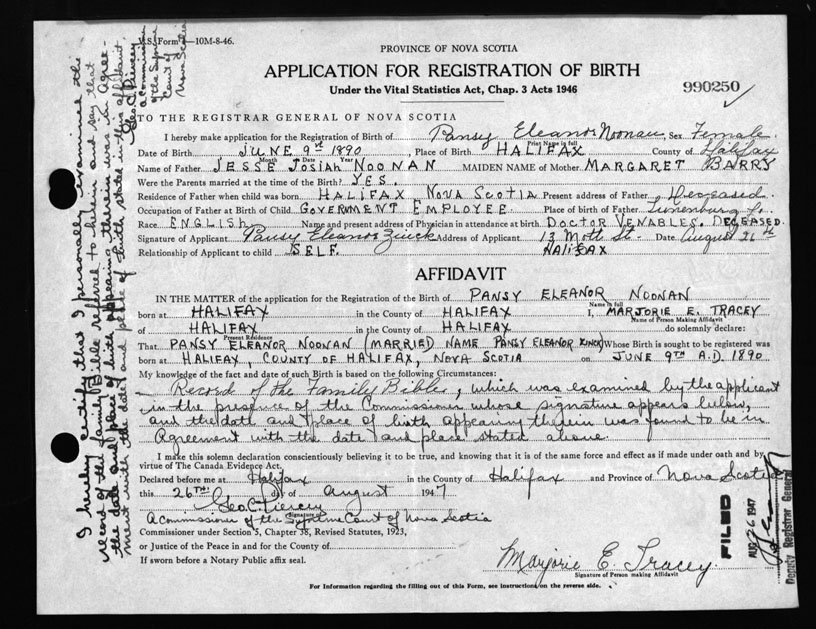 V.S. Form 10M-8-46.
PROVINCE OF NOVA SCOTIA
APPLICATION FOR REGISTRATION OF BIRTH
Under the Vital Statistics Act, Chap. 3 Acts 1946
990250
TO THE REGISTRAR GENERAL OF NOVA SCOTIA
I hereby make application for the Registration of Birth of Pansy Eleanor Noonan, Sex Female.
Print Name in full
Date of Birth JUNE 9th 1890 Place of Birth HALIFAX County of Halifax
Month Date Year
Name of Father JESSE JOSIAH NOONAN MAIDEN NAME of Mother MARGARET BARRY
Were the Parents married at the time of the Birth? YES.
Residence of Father when child was born HALIFAX NOVA SCOTIA Present address of Father Deceased.
Occupation of Father at Birth of Child GOVERNMENT EMPLOYEE. Place of birth of Father Lunenburg Co.
Race ENGLISH Name and present address of Physician in attendance at birth DOCTOR VENABLES, DECEASED.
Signature of Applicant Pansy Eleanor Zinck Address of Applicant 13 Mott St. Date August 26th
Relationship of Applicant to child SELF. HALIFAX
AFFIDAVIT
IN THE MATTER of the application for the Registration of the Birth of PANSY ELEANOR NOONAN
Name in full
born at HALIFAX in the County of HALIFAX I, MARJORIE E. TRACEY
Name of Person Making Affidavit
of HALIFAX in the County of HALIFAX do solemnly declare:
Present Residence
That PANSY ELEANOR NOONAN (MARRIED) NAME PANSY ELEANOR ZINCK) Whose Birth is sought to be registered was
born at HALIFAX, COUNTY OF HALIFAX, NOVA SCOTIA on JUNE 9TH A.D. 1890
My knowledge of the fact and date of Birth is based on the following Circumstances:
Record of the Family Bible, which was examined by the applicant
in the presence of the Commissioner whose signature appears below,
and the date and place of birth appearing therein was found to be in
Agreement with the date and place stated above.
I make this solemn declaration conscientiously believing it to be true, and knowing that it is of the same force and effect as if made under oath and by
virtue of The Canada Evidence Act.
Declared before me at Halifax in the County of Halifax and Province of Nova Scotia
this 26TH day of August 1947
Geo. C. Piercey
Signature of
A Commissioner of the Supreme Court of Nova Scotia
Commissioner under Section 5, Chapter 38, Revised Statutes, 1923,
or Justice of the Peace in and for the County of
If sworn before a Notary Public affix seal.
Marjorie E. Tracey.
Signature of Person making Affidavit
For Information regarding the filling out of this Form, see instructions on the reverse side.
FILED
AUG 26 1947
Deputy Registrar General
I hereby certify that I personally examined the
record of the family Bible referred to herein and say that
the date and place of birth appearing therein was in agree-
ment with the date and place of birth stated in this affidavit.
Geo. C. Piercey
A Commissioner
of the Supreme
Court of
Nova Scotia